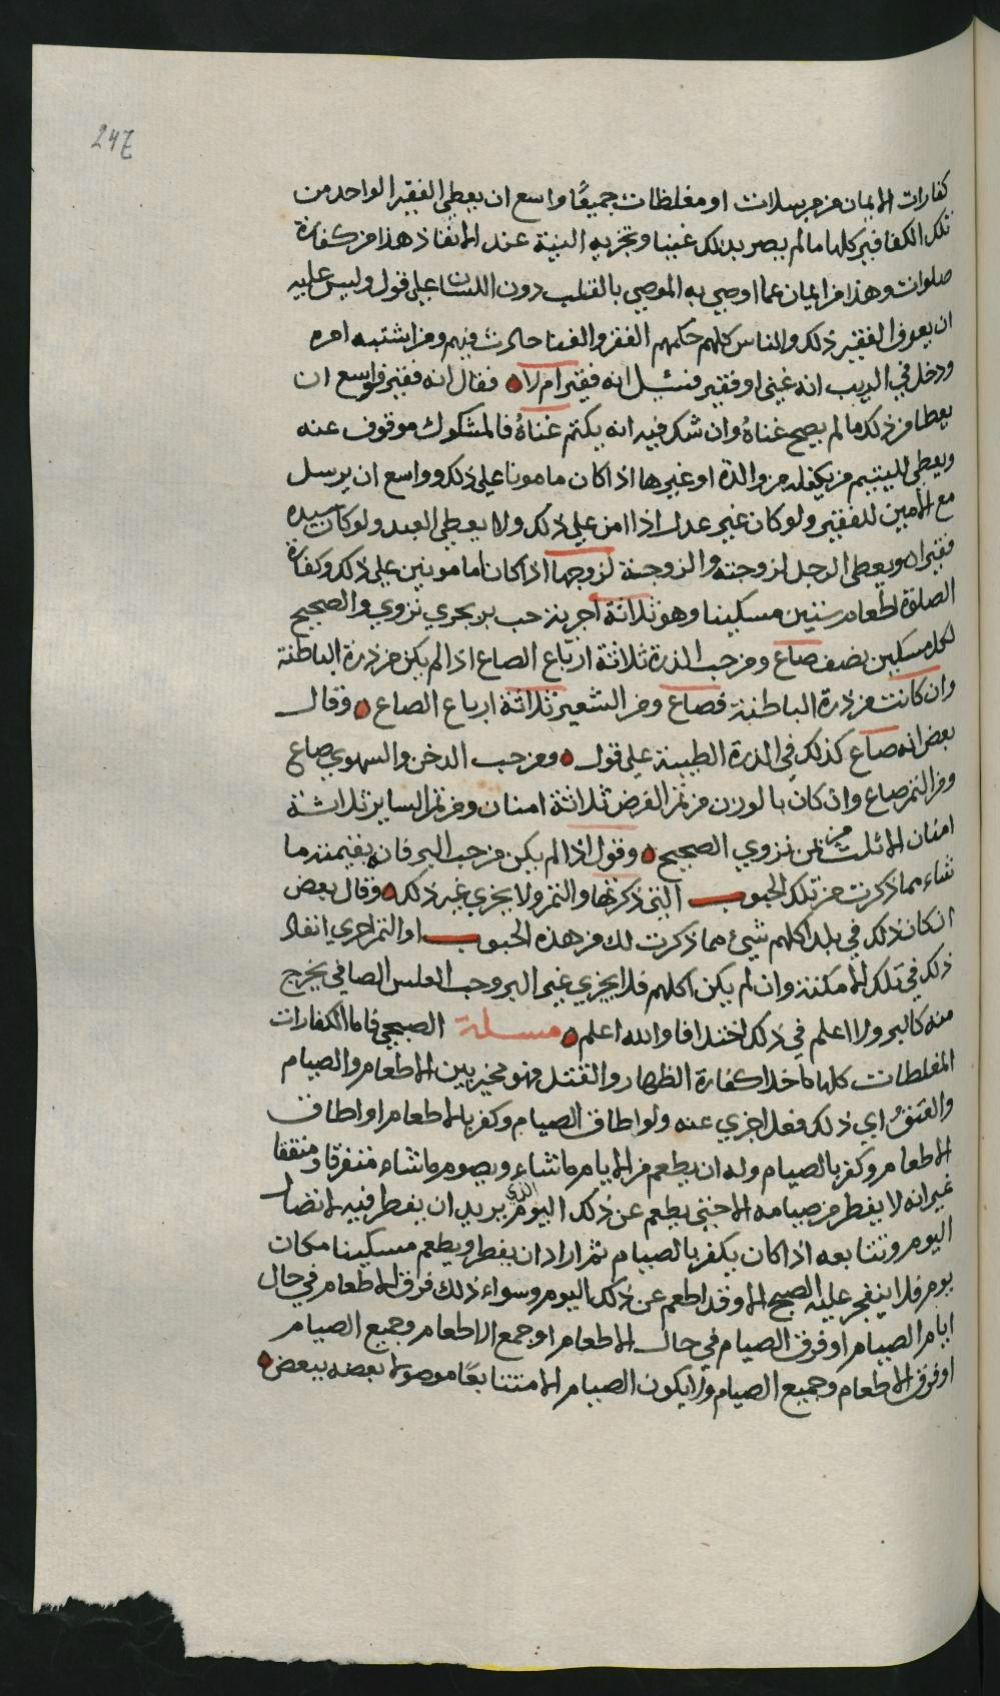 247
كفارات الايمان من مرسلات او مغلظات جميعًا واسع ان يعطي الفقير الواحد من
تلك الكفافير كلها ما لم يصر بذلك غنيا وتجزيه النية عند الانفاذ هذا من كفارة
صلوات وهذا من ايمان عما اوصي به الموصي بالقلب دون اللسان على قول وليس عليه
ان يعرف الفقير ذلك والناس كلهم حكمهم الفقر والغنا حادث فيهم ومن اشتبه امره
ودخل في الريب انه غني او فقير فسئل انه فقير ام لا فقال انه فقير فواسع ان
يعطا من ذلك ما لم يصح غناهُ وان شك فيه انه يكتم غناهُ فالمشكوك موقوف عنه
ويعطي لليتيم من يكفله من والدة او غيرها اذا كان مامونا على ذلك وواسع ان يرسل
مع الامين للفقير ولو كان غير عدل اذا امن على ذلك ولا يعطي العبد ولو كان سيده
فقيرا ويعطى الرجل لزوجته والزوجة لزوجها اذا كانا مامونين على ذلك وكفارة
الصلوة اطعام ستين مسكينا وهو ثلاثة اجرية حب بر بحري نزوي والصحيح
لكل مسكين نصف صاع ومن حب الذرة ثلاثة ارباع الصاع اذا لم يكن من ذرة الباطنة
وان كانت من ذرة الباطنة فصاع ومن الشعير ثلاثة ارباع الصاع وقال
بعض انه صاع كذلك في الذرة الطيبة على قول ومن حب الدخن والسهوي صاع
ومن التمر صاع وان كان بالوزن من تمر الفرض ثلاثة امنان ومن تمر الساير ثلاثة
امنان الا ثلث من من نزوي الصحيح وقول اذا لم يكن من حب البر فان بقيمته ما
شاء مما ذكرت من تلك الحبوب التي ذكرتها والتمر ولا يجزي غير ذلك وقال بعض
ان كان ذلك في بلد اكلهم شيئ مما ذكرت لك من هذه الحبوب او التمر اجزي انفاد
ذلك في تلك الامكنة وان لم يكن اكلهم فلا يجزي غير البر وحب العلس الصافي يخرج
منه كالبر ولا اعلم في ذلك اختلافا والله اعلم مسئلة الصبحي فاما الكفارات
المغلظات كلها ما خلا كفارة الظهار والقتل فهو مخير بين الاطعام والصيام
والعتق اي ذلك فعل اجزي عنه ولو اطاق الصيام وكفر بالاطعام او اطاق
الاطعام وكفر بالصيام وله ان يطعم من الايام ما شاء ويصوم ما شاء متفرقا ومتفقا
غير انه لا يفطر من صيامه الا حتى يطعم عن ذلك اليوم الذي يريد ان يفطر فيه لاتصال
اليوم وتتابعه اذا كان يكفر بالصيام ثم اراد ان يفطر ويطعم مسكينا مكان
يوم فلا ينفجر عليه الصبح الا وقد اطعم عن ذلك اليوم وسواء ذلك فرق الاطعام في حال
ايام الصيام او فرق الصيام في حال الاطعام او جمع الاطعام وجمع الصيام
او فرق الاطعام وجميع الصيام ولا يكون الصيام الا متتابعًا موصولا بعضه ببعض